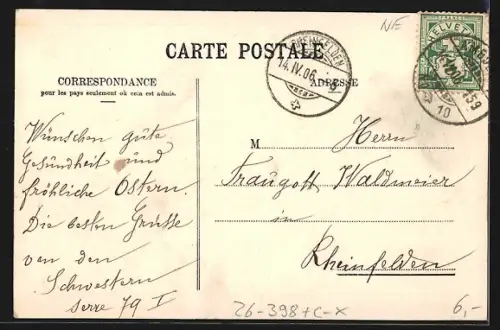 NE
CARTE POSTALE
RHEINFELDEN
14.IV.06
HELVETIA
10
CORRESPONDANCE
pour les pays seulement où cela est admis.
ADRESSE
Wünschen gute
Gesundheit und
fröhliche Ostern.
Die besten Grüsse
von den
Schwestern
Serre 79 I
M Herrn
Traugott Waldmeier
in
Rheinfelden
26-398+C-X
6,-